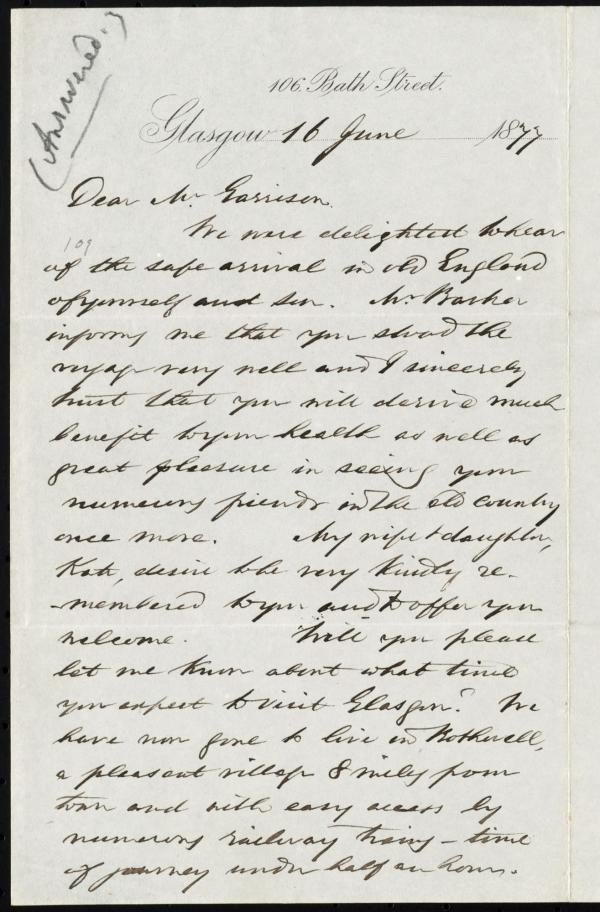 (Answered.)
106. Bath Street.
Glasgow 16 June 1877
Dear Mr Garrison.
We were delighted to hear
109
of the safe arrival in old England
of yourself and son. Mr Barker
informs me that you stood the
voyage very well and I sincerely
trust that you will derive much
benefit to your health as well as
great pleasure in seeing your
numerous friends in the old country
once more. My wife & daughter,
Kate, desire to be very kindly re-
-membered to you and to offer you
welcome. Will you please
let me know about what time
you expect to visit Glasgow? We
have now gone to live in Bothwell,
a pleasant village 8 miles from
town and with easy access by
numerous railway trains - time
of journey under half an hour.